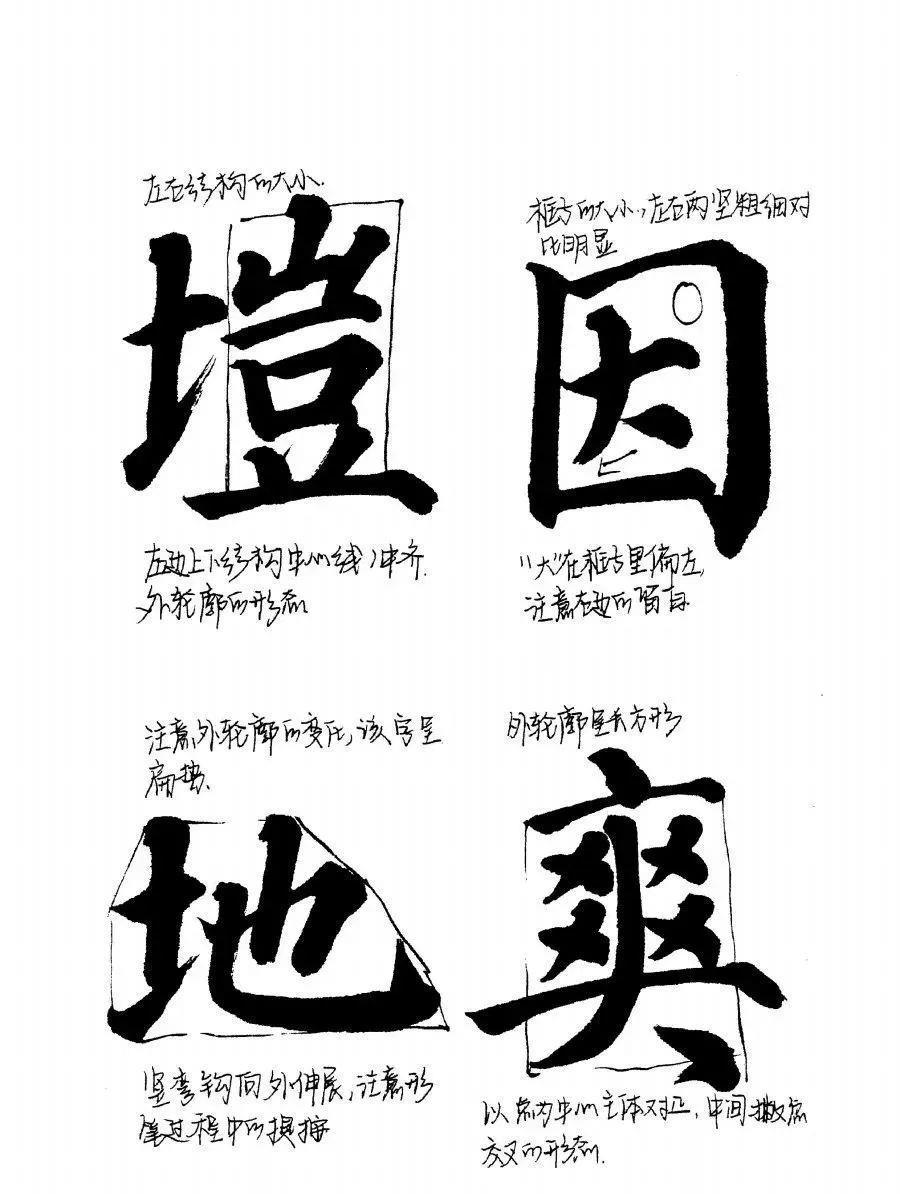 左右结构的大小.
塏
左边上下结构中心线对齐.
外轮廓的形态
框与的大小,左右两竖粗细对
比明显
因
"大"在框与里偏左,
注意右边的留白
注意外轮廓的变化,该字呈
扁势.
地
竖弯钩向外伸展,注意形
笔过程中的换接
外轮廓呈长方形
爽
以点为中心主体对正,中间撇点
交叉的形态.